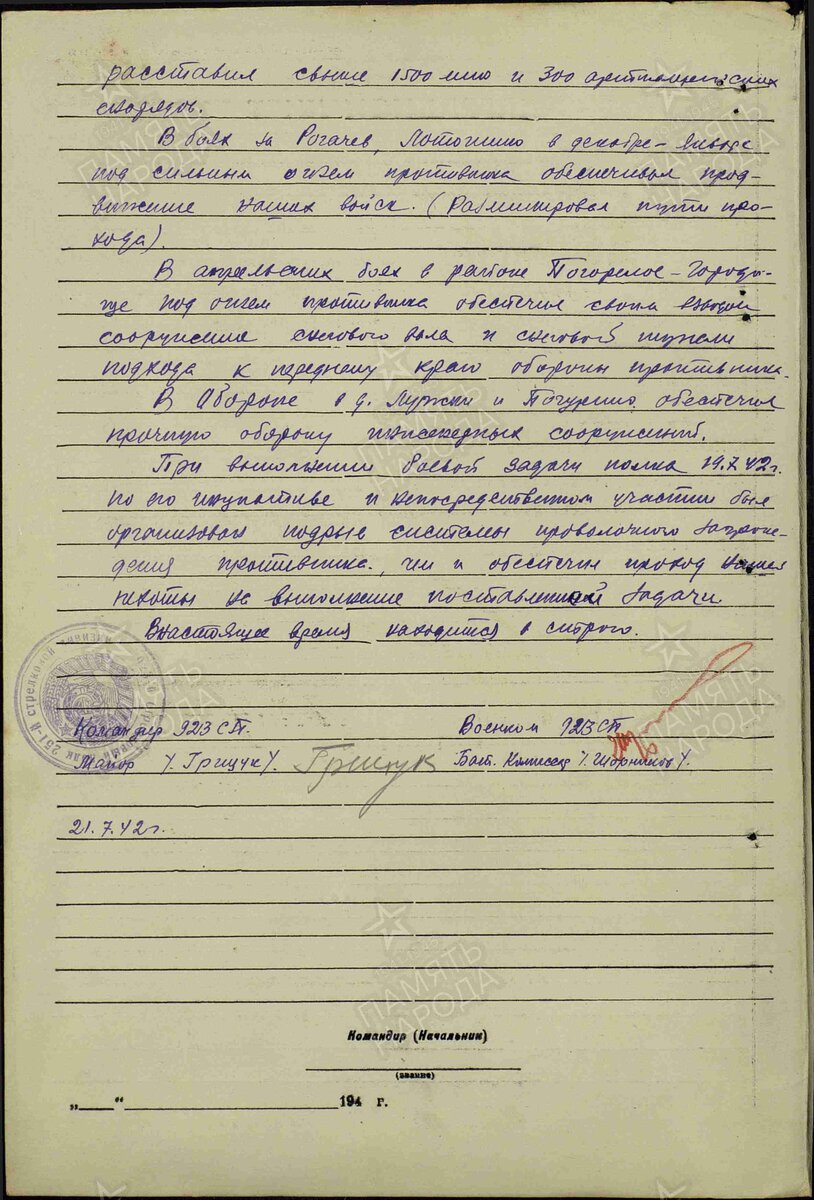 расставил свыше 1500 мин и 300 артиллерийских
снарядов.
В боях за Рогачев, Лотошино в декабре-январе
под сильным огнем противника обеспечивал прод-
вижение наших войск. (Разминировал пути про-
хода).
В апрельских боях в районе Погорелое-Городи-
ще под огнем противника обеспечил своим взводом
сооружение снегового вала и снеговой туннели
подхода к переднему краю обороны противника.
В обороне в д. и обеспечил
прочную оборону инженерных сооружений.
При выполнении боевой задачи полка 19.7.42г.
по его инициативе и непосредственном участии был
организован подрыв системы проволочного загражде-
дения противника, чем и обеспечил проход нашей
пехоты на выполнение поставленной задачи.
Внастоящее время находится в строю.
251-й стрелковой дивизии
Командир 923 СП. Военком 923 СП
Майор /. Грищук/. Грищук Бат. Комиссар /. Шорников/.
21.7.42г.
Командир (Начальник)
(звание)
„ “ 194 г.
ПАМЯТЬ
НАРОДА